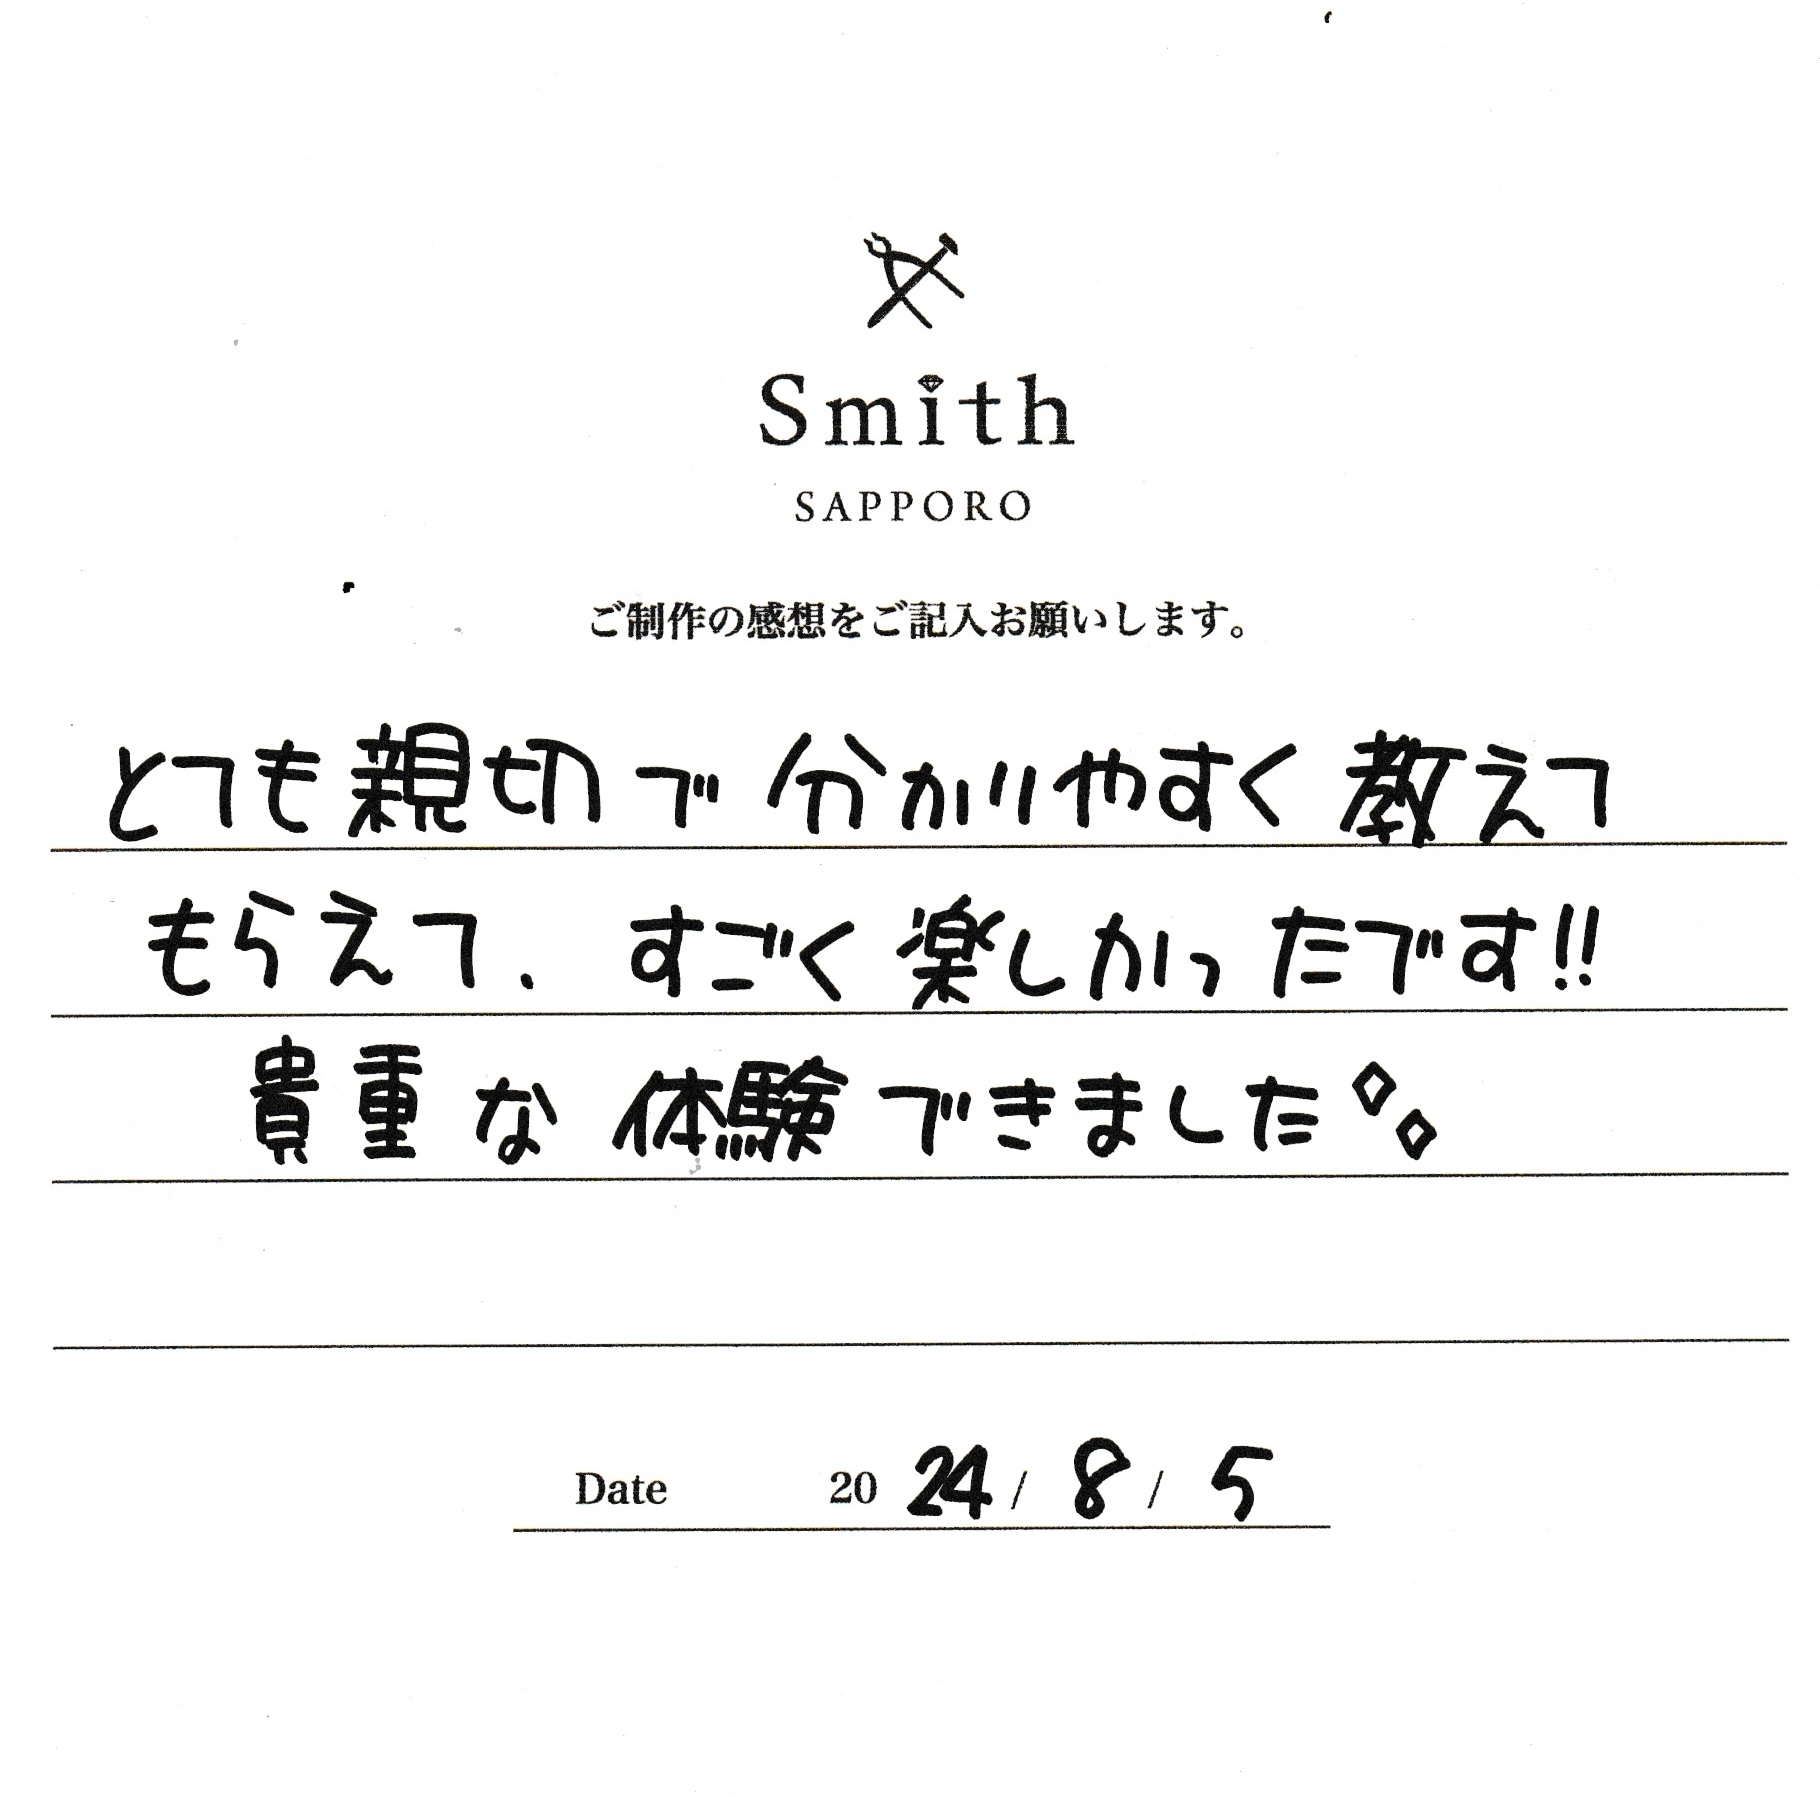 Smith
SAPPORO
ご制作の感想をご記入お願いします。
とても親切で分かりやすく教えて
もらえて、すごく楽しかったです!!
貴重な体験できました
Date 2024/8/5